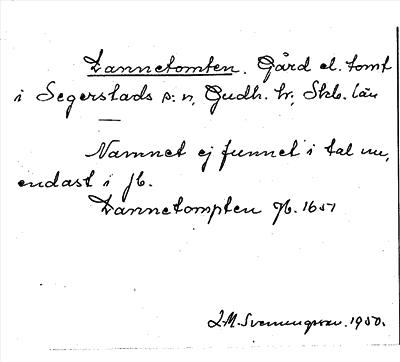 Dannetomten. Gård el. tomt
i Segerstads s:n, Gudh. hr, Skb. län
Namnet ej funnet i tal nu,
endast i jb.
Dannetompten Jb. 1651
1950.